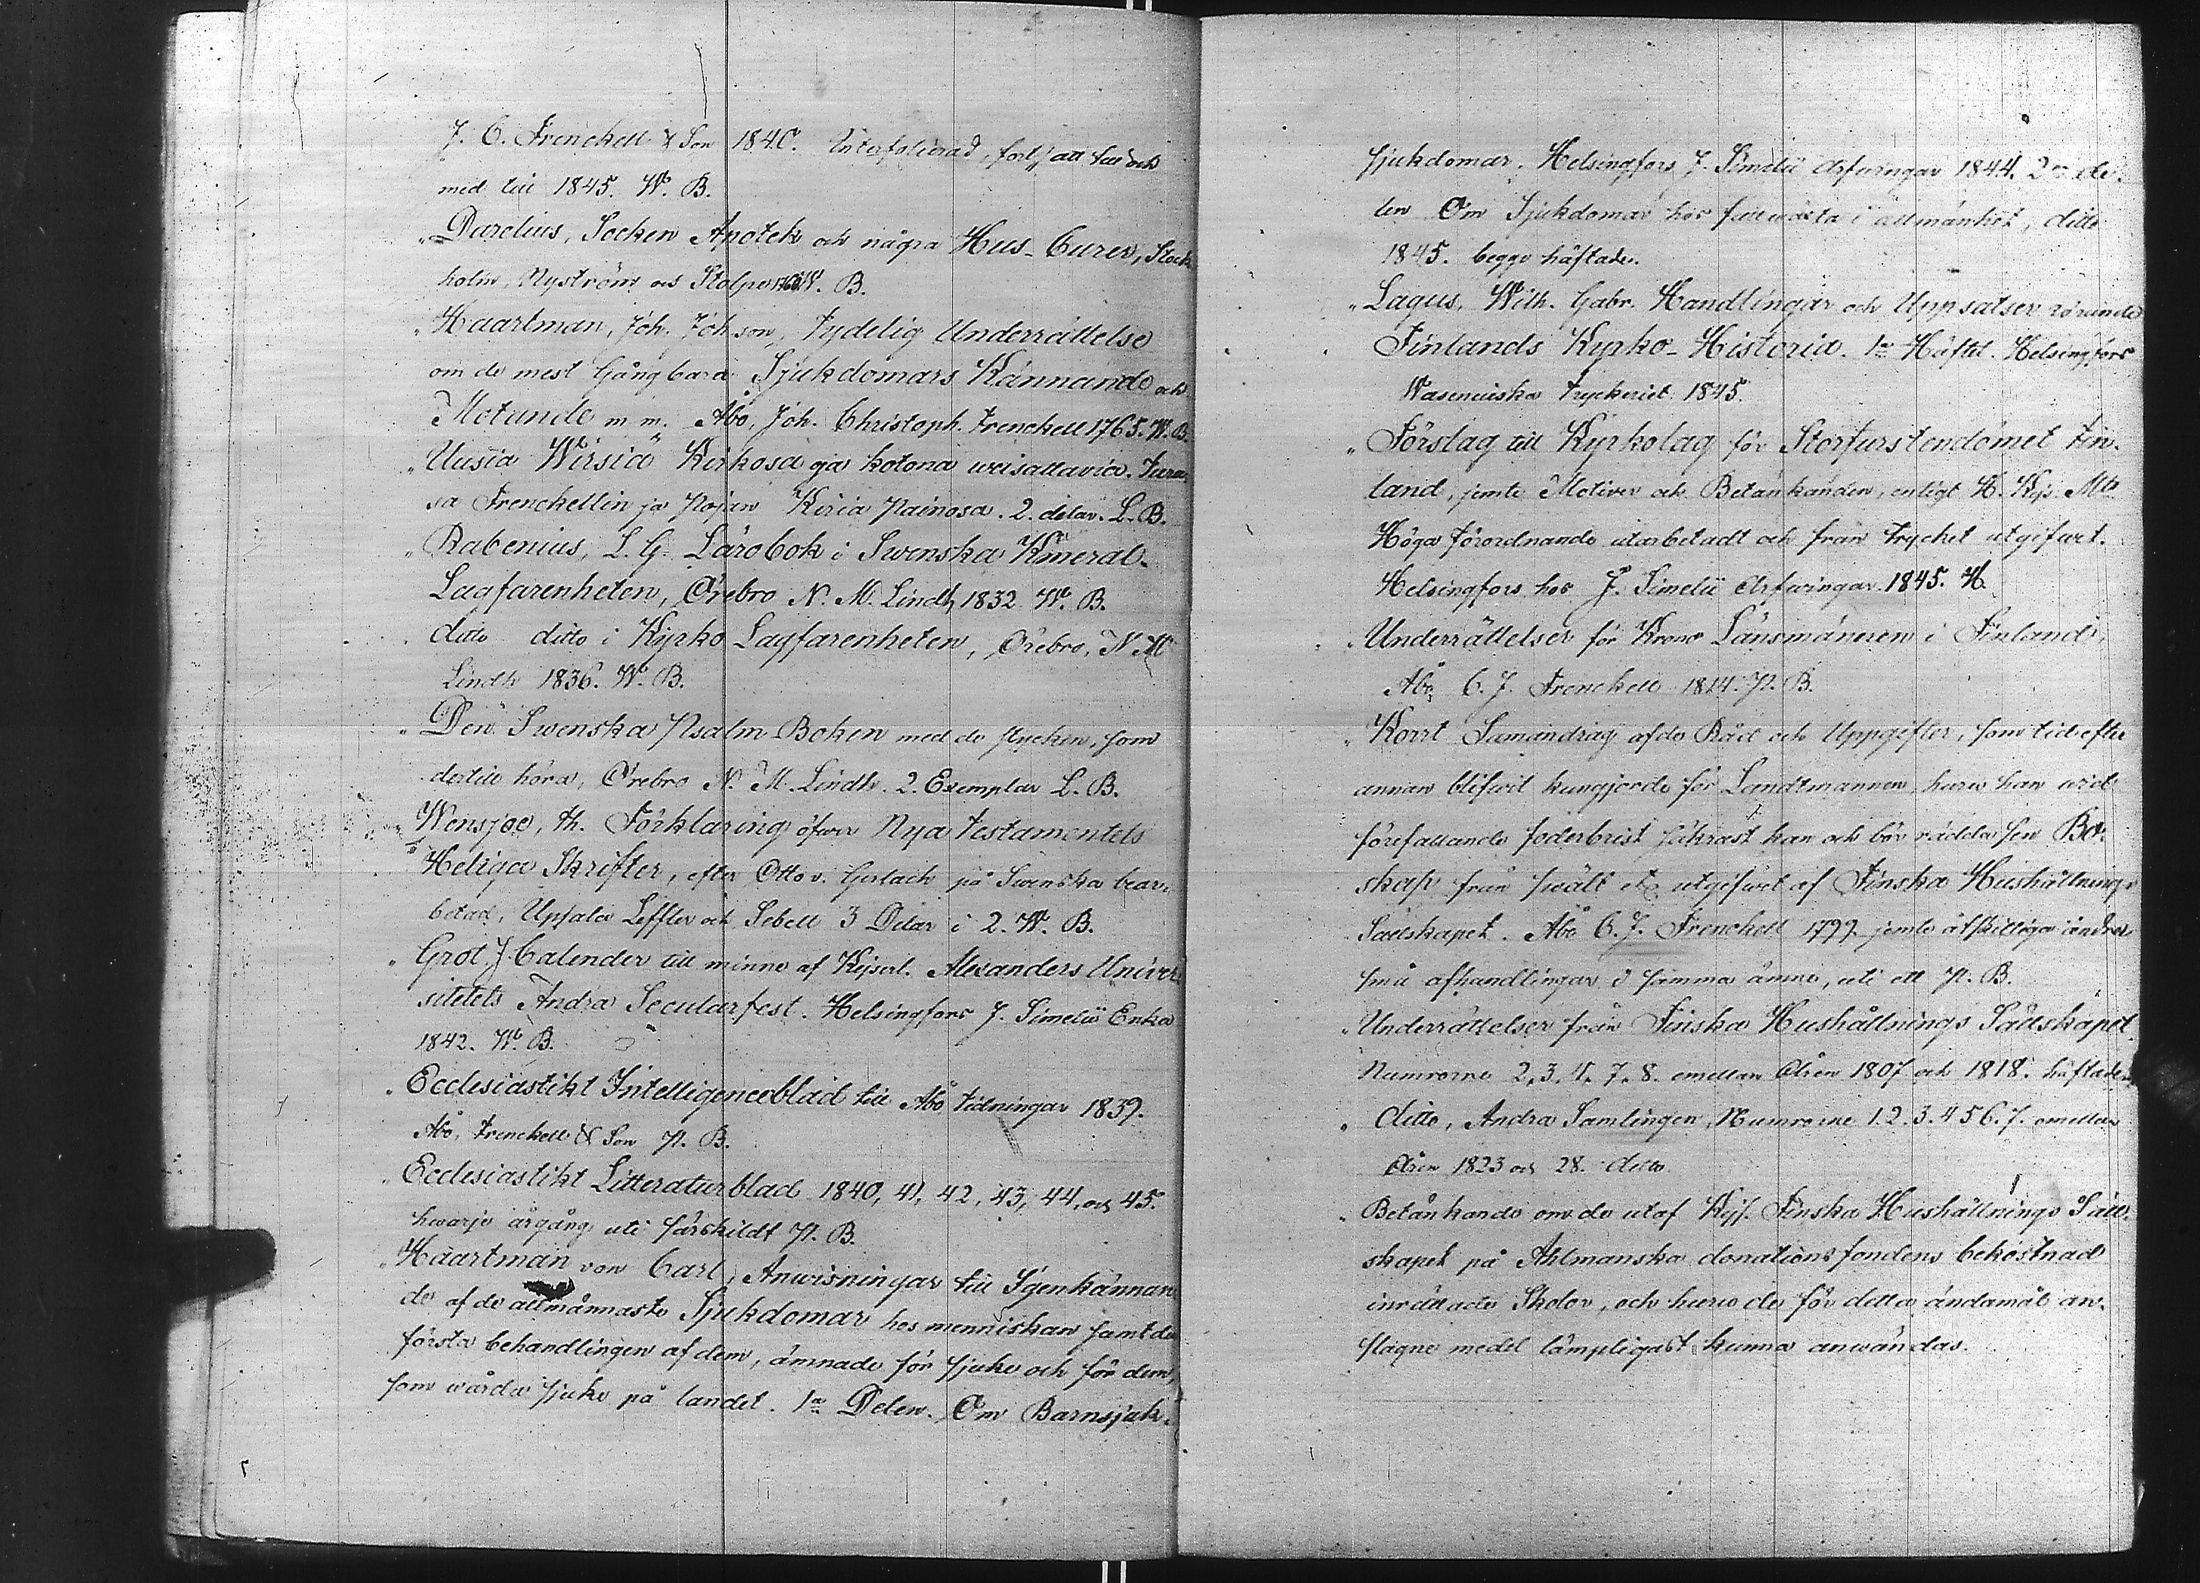 J. C. Frenckell & Son 1840. Interfolierad, forts. till och
med till 1845. W. B.
„ Darelius, Socken Apotek och några Hus-Curer, Stock
holm, Nyström och Stolpe 1760 W. B.
„ Haartman, Joh. Joh.son, Tydelig Underrättelse
om de mest Gångbara Sjukdomars Kännande och
Motande m. m. Åbo, Joh. Christoph. Frenckell 1765. W. B.
„ Uusia Wirsiä Kirkosa ja kotona weisattavia. Turu
sa Frenckellin ja Pojan Kirja Painosa. 2. delar. L. B.
„ Rabenius, L. G. Lärobok i Swenska Kameral-
Lagfarenheten, Örebro N. M. Lindh, 1832 W. B.
„ ditto ditto i Kyrko Lagfarenheten, Örebro, N. M
Lindh 1836. W. B.
„ Den Swenska Psalm Boken med de stycken, som
dertill höra, Örebro N. M. Lindh. 2. Exemplar L. B.
„ Wensjoe, Th. Förklaring öfwer Nya Testamentets
Heliga Skrifter, efter Otto v. Gerlach på Swenska bear-
betad, Upsala Leffler och Sebell 3 Delar i 2. W. B.
„ Grot J. Calender till minne af Kejserl. Alexanders Univer
sitetets Andra Secularfest. Helsingfors J. Simelii Enka
1842. W. B.
„ Ecclesiastikt Intelligencebland till Åbo Tidningar 1839.
Åbo, Frenckell & Son P. B.
„ Ecclesiastikt Litteraturblad 1840, 41, 42, 43, 44, och 45.
hwarje årgång uti särskildt P. B.
„ Haartman von Carl, Anwisningar till Igenkännan
de af de allmännaste Sjukdomar hos menniskan samt den
första behandlingen af dem, ämnade för sjuke och för dem,
som wårda sjuke på landet. 1a Delen. Om Barnsjuk-
sjukdomar. Helsingfors J. Simelii Arfwingar 1844. 2a de-
len Om Sjukdomar hos fullwäxta i allmänhet, ditto
1845. begge häftade.
„ Lagus, Wilh. Gabr. Handlingar och Uppsatser rörande
Finlands Kyrko-Historia. 1a Häftet. Helsingfors
Waseniuska Tryckeriet 1845.
„ Förslag till Kyrkolag för Storfurstendömet Fin-
land, jemte Motiver och Betänkanden, enligt H. Kejs. Mts
Höga Förordnande utarbetadt och från Trycket utgifwet.
Helsingfors hos J. Simelii Arfwingar 1845. H.
„ Underrättelser för Krono Länsmännen i Finland,
Åbo, C. J. Frenckell 1814. P. B.
„ Kort Samandrag af de Råd och Uppgifter, som tid efter
annan blifwit kungjorde för Landtmannen huru han wid
förefallande foderbrist säkrast kan och bör rädda sin Bo-
skap från swält etc utgifwet af Finska Hushållnings
Sällskapet. Åbo C. J. Frenckell 1799. jemte åtskilliga andra
små afhandlingar i samma ämne, uti ett P. B.
„ Underrättelser från Finska Hushållnings Sällskapet
Numrorne 2, 3, 4, 7, 8. emellan Åren 1807 och 1818. häftade.
„ ditto, Andra Samlingen, Numrorne 1. 2. 3. 4 5 6. 7. emellan
Åren 1823 och 28. ditto
„ Betänkande om de utaf Kejs. Finska Hushållnings Säll-
skapet på Ahlmanska donationsfondens bekostnad
inrättade Skolor, och huru de för detta ändamål an-
slagne medel lämpligast kunna användas.